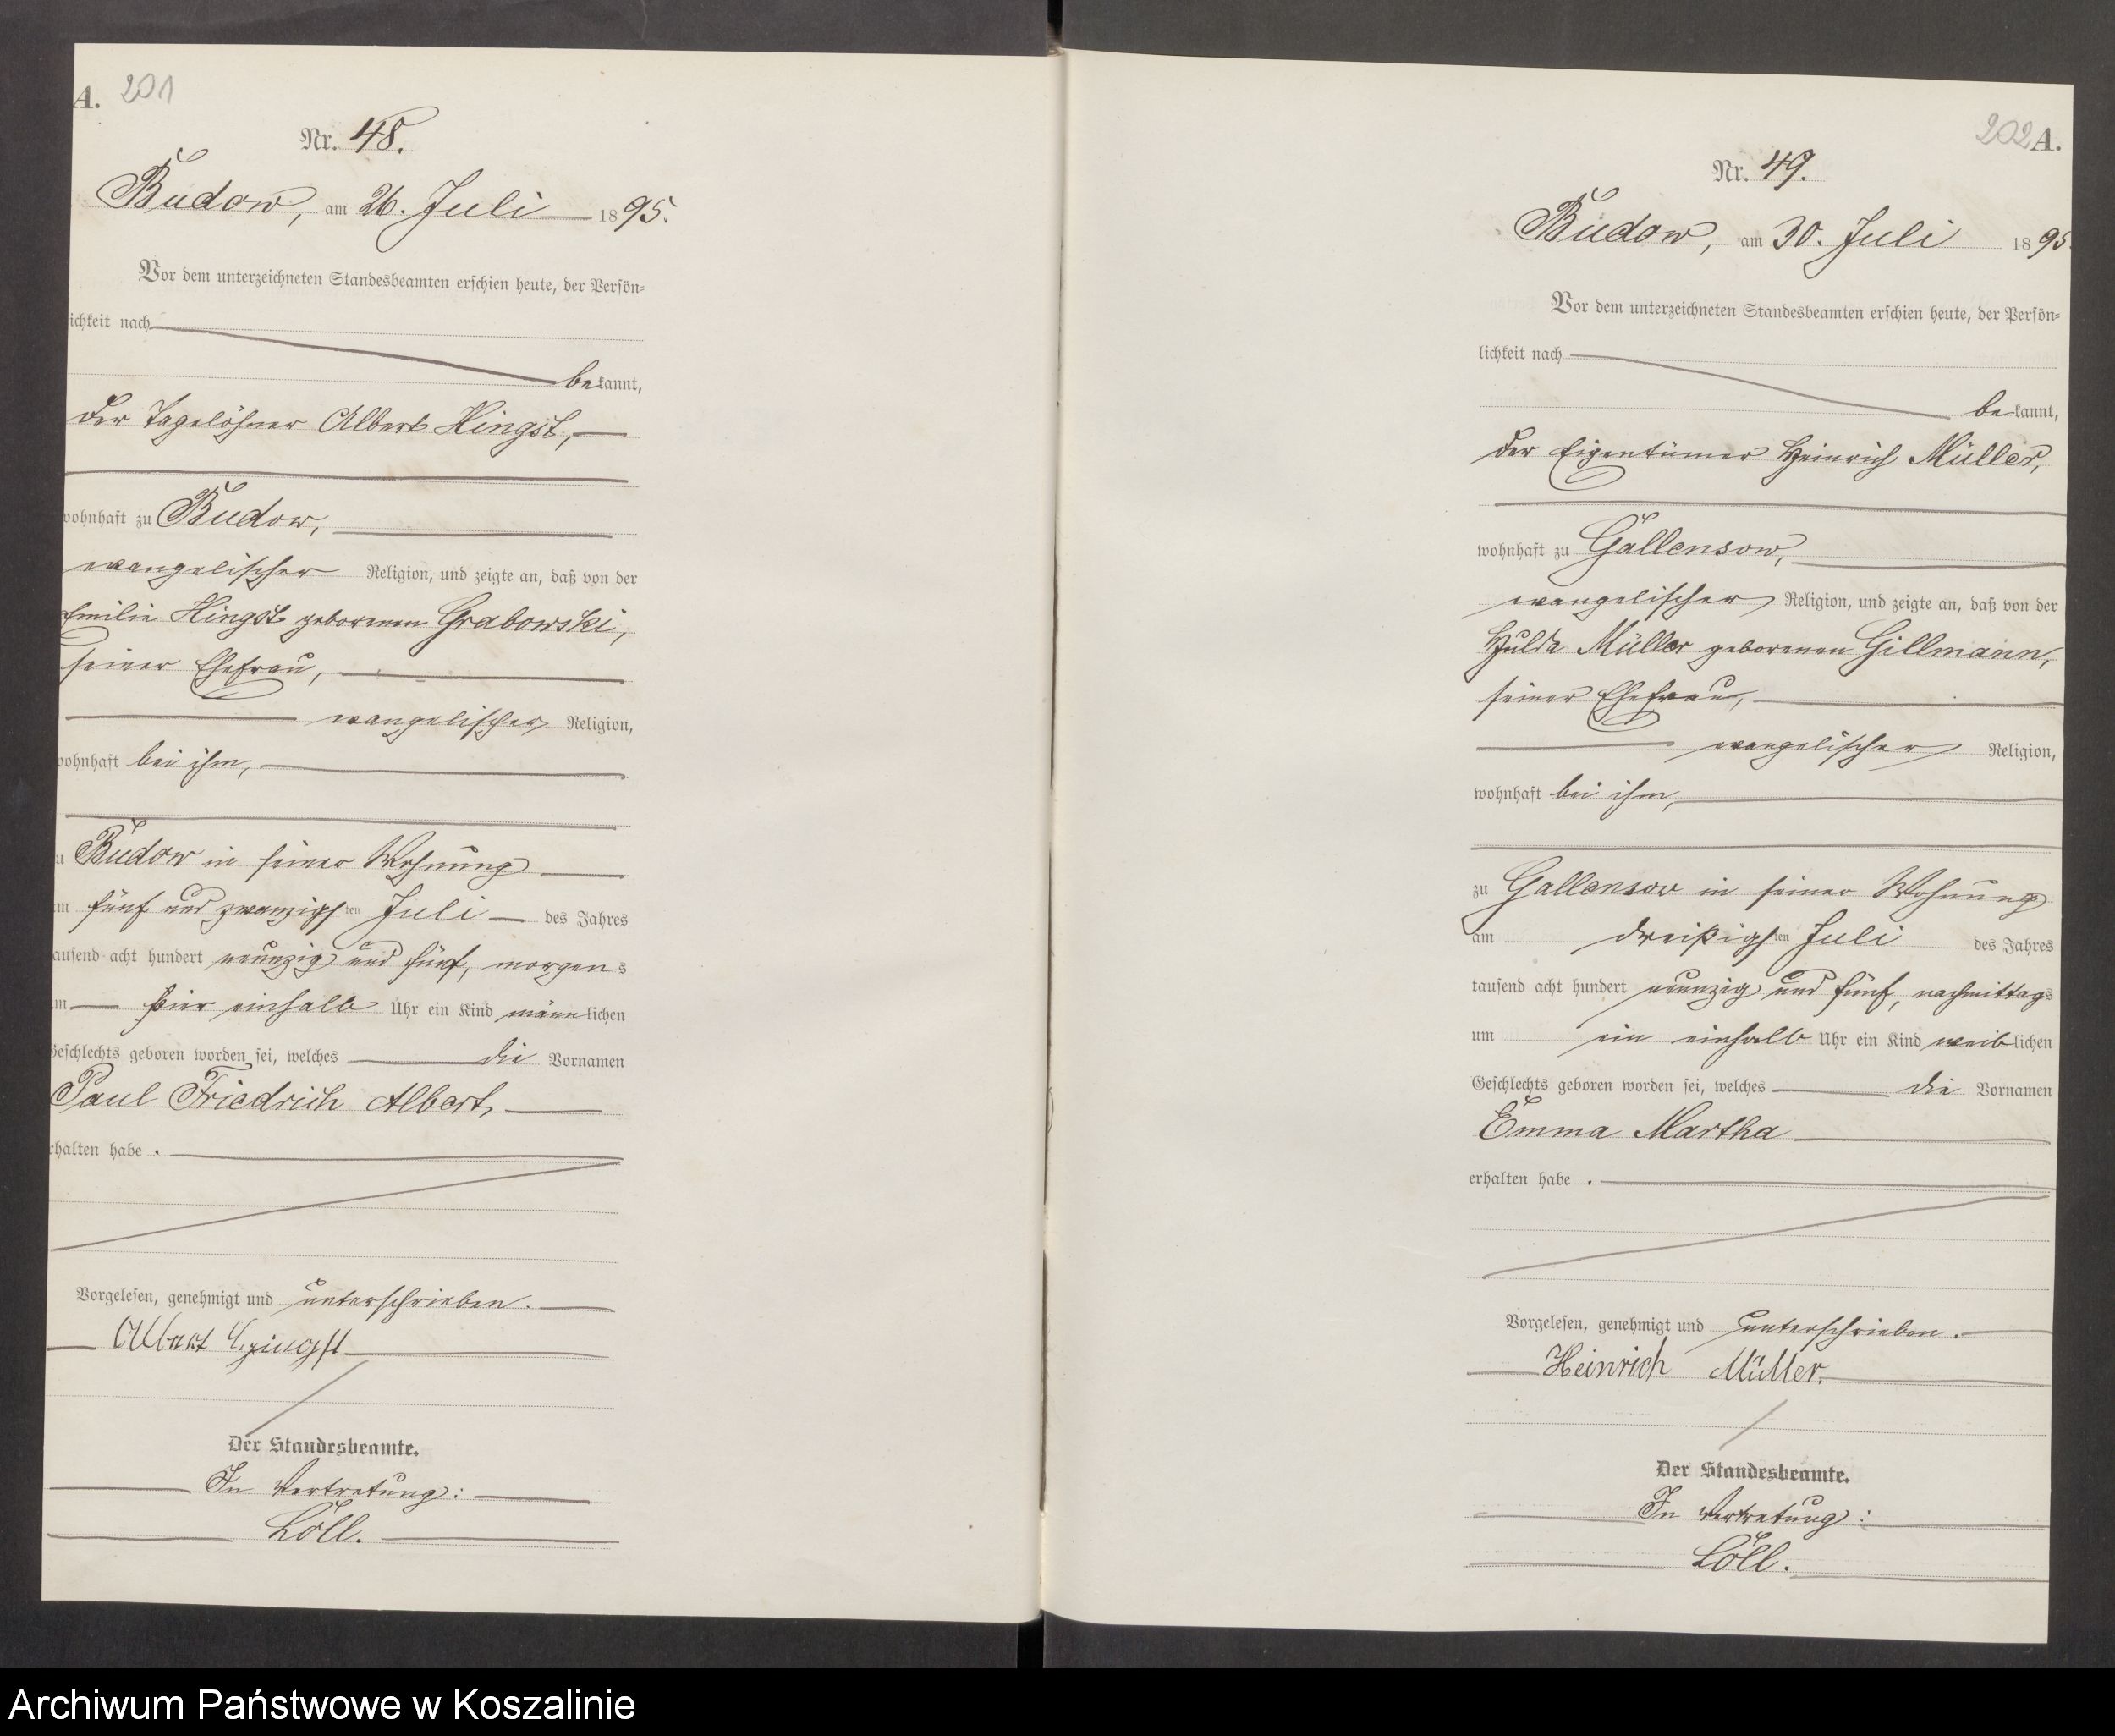 A. 201
Nr. 48.
Budow, am 26. Juli 1895.
Vor dem unterzeichneten Standesbeamten erschien heute, der Persön-
ichkeit nach
bekannt,
der Tagelöhner Albert Hingst,
wohnhaft zu Budow,
evangelischer Religion, und zeigte an, daß von der
Emilie Hingst geborenen Grabowski,
seiner Ehefrau,
evangelischer Religion,
wohnhaft bei ihm,
zu Budow in seiner Wohnung
am fünf und zwanzigsten Juli des Jahres
tausend acht hundert neunzig und fünf, morgens
um vier einhalb Uhr ein Kind männlichen
Geschlechts geboren worden sei, welches die Vornamen
Paul Friedrich Albert,
erhalten habe.
Vorgelesen, genehmigt und unterschrieben.
Albert Hingst
Der Standesbeamte.
In Vertretung:
Löll.
202 A.
Nr. 49.
Budow, am 30. Juli 1895
Vor dem unterzeichneten Standesbeamten erschien heute, der Persön-
lichkeit nach
bekannt,
der Eigentümer Heinrich Müller,
wohnhaft zu Gallensow,
evangelischer Religion, und zeigte an, daß von der
Hulda Müller geborenen Gillmann,
seiner Ehefrau,
evangelischer Religion,
wohnhaft bei ihm,
zu Gallensow in seiner Wohnung
am dreißigsten Juli des Jahres
tausend acht hundert neunzig und fünf, nachmittags
um ein einhalb Uhr ein Kind weiblichen
Geschlechts geboren worden sei, welches die Vornamen
Emma Martha
erhalten habe.
Vorgelesen, genehmigt und unterschrieben.
Heinrich Müller.
Der Standesbeamte.
In Vertretung:
Löll.
Archiwum Państwowe w Koszalinie